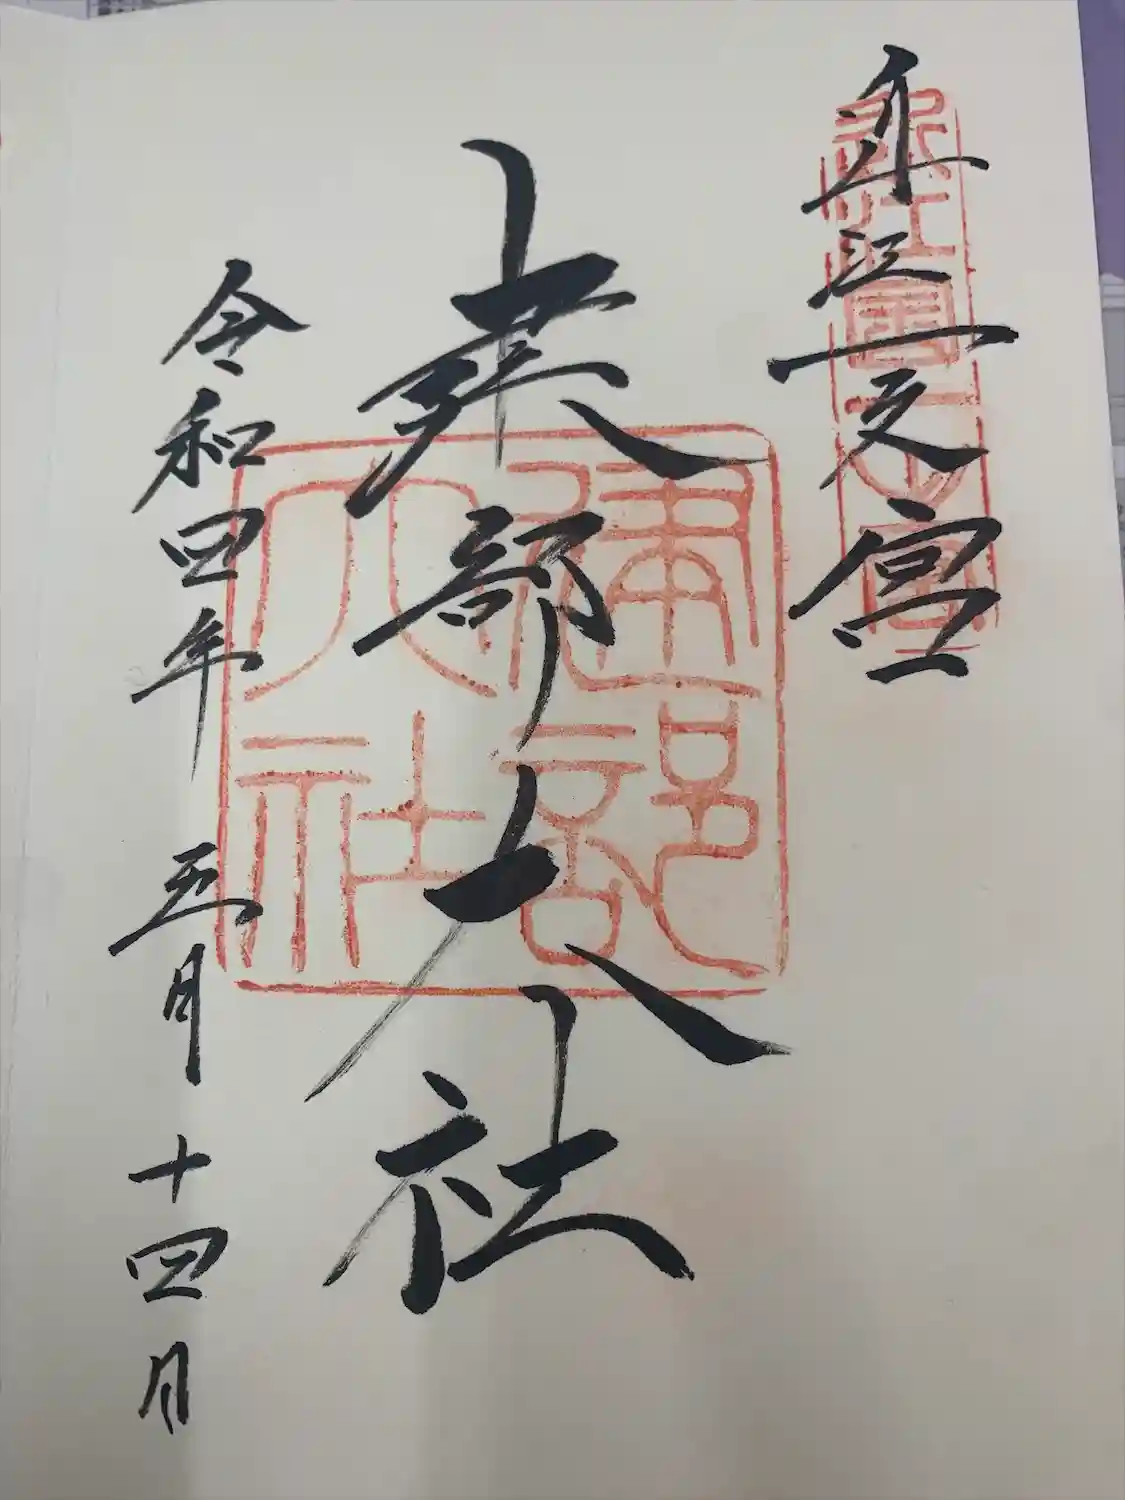 近江一之宮
建部大社
令和四年 五月十四日
近江國一之宮
建部大社